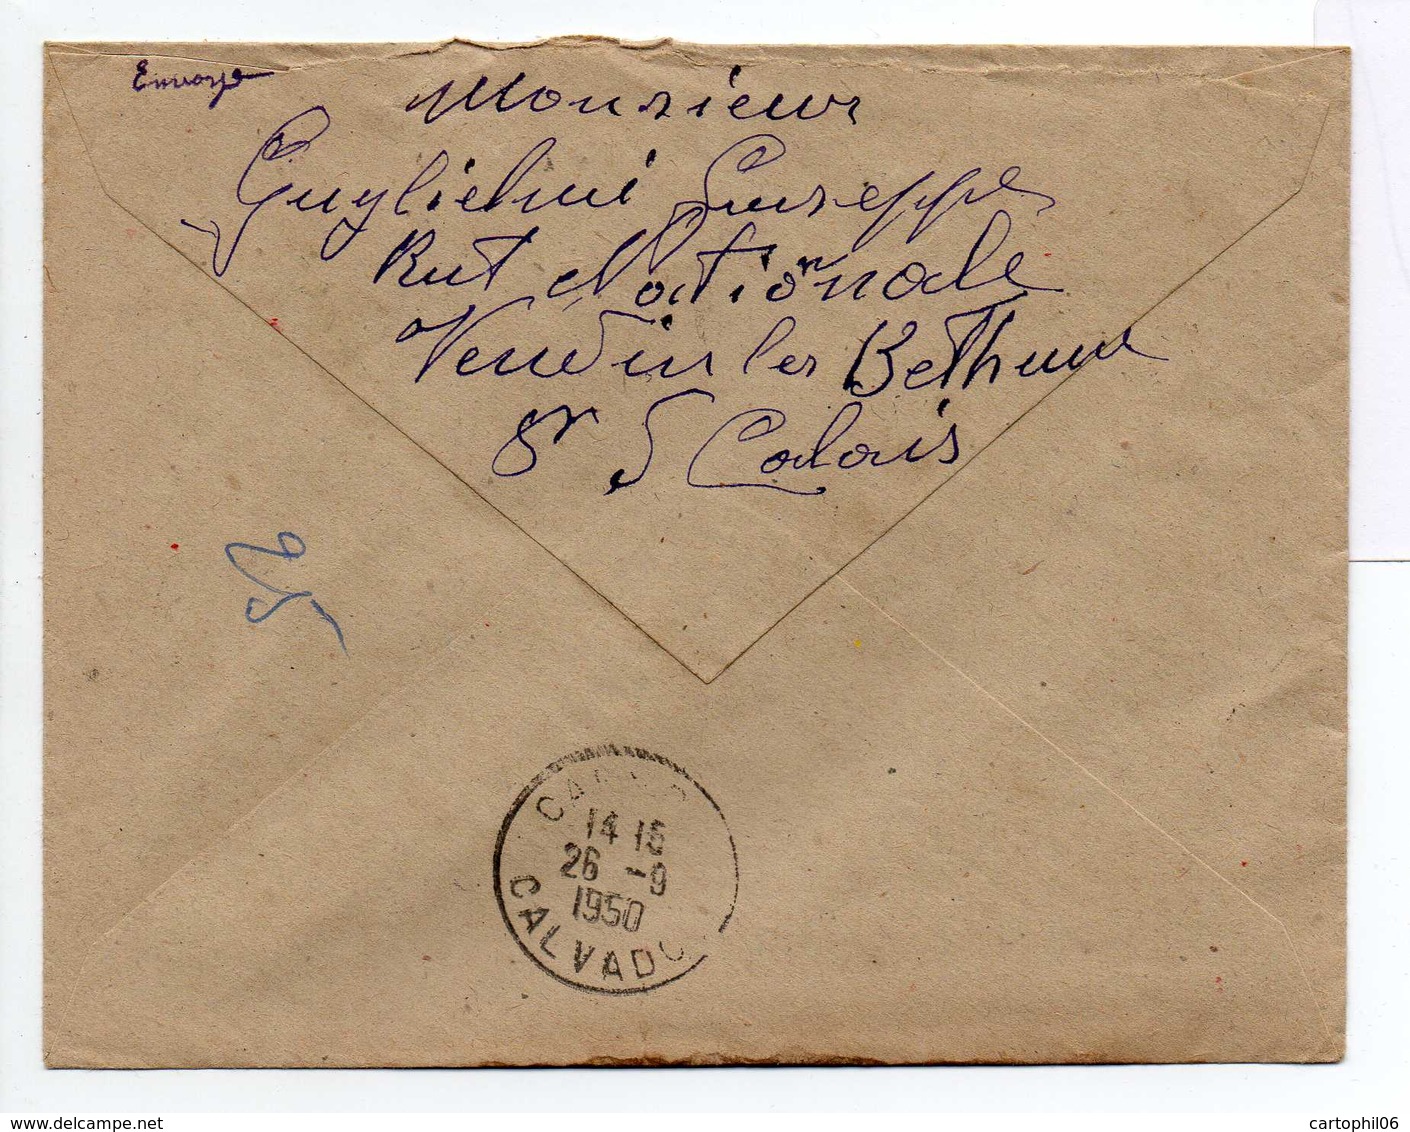 Envoye
Monsieur
Guglielmi Guseppe
Rut Nationale
Vendin les Bethune
S Calais
25
14 15
26 -9
1950
CALVADO
delcampe.net
cartophil06